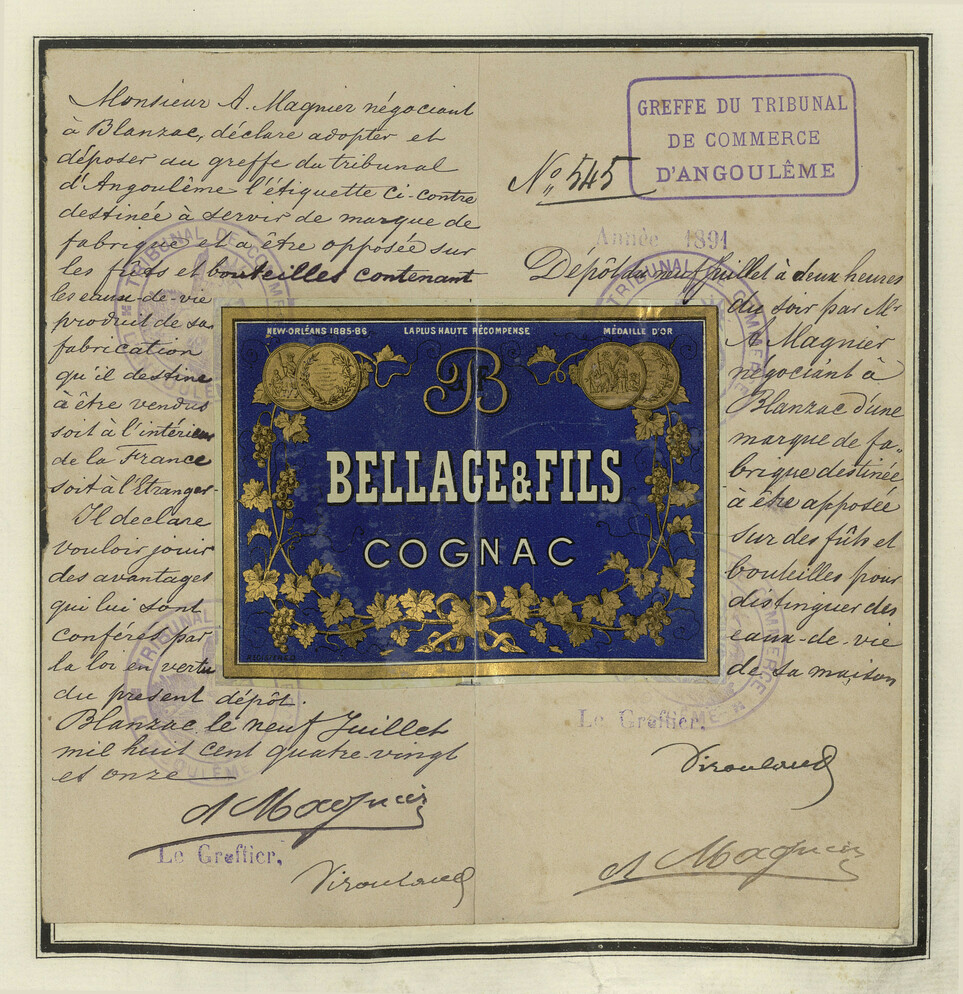 Monsieur A. Magnier négociant
à Blanzac, déclare adopter et
déposer au greffe du tribunal
d'Angoulême l'étiquette ci-contre
destinée à servir de marque de
fabrique et à être opposée sur
les fûts et bouteilles contenant
les eaux-de-vie
produit de sa
fabrication
qu'il destine
à être vendus
soit à l'intérieur
de la France
soit à l'Etranger
Il déclare
vouloir jouir
des avantages
qui lui sont
conférés par
la loi en vertu
du présent dépôt.
Blanzac le neuf Juillet
mil huit cent quatre-vingt
et onze
A Magnier
Le Greffier,
GREFFE DU TRIBUNAL
DE COMMERCE
D'ANGOULÊME
No 545
Année 1891
Dépôt du neuf juillet à deux heures
du soir par Mr
A Magnier
négociant à
Blanzac d'une
marque de fa-
brique destinée
à être apposée
sur des fûts et
bouteilles pour
distinguer des
eaux-de-vie
de sa maison
Le Greffier,
A Magnier
NEW-ORLÉANS 1885-86 LA PLUS HAUTE RÉCOMPENSE MÉDAILLE D'OR
B
BELLAGE & FILS
COGNAC
TRIBUNAL DE COMMERCE
TRIBUNAL DE COMMERCE